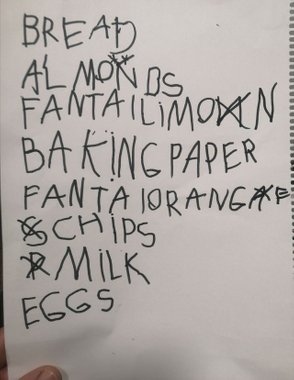 BREAD
ALMONDS
FANTA1LIMON
BAKING PAPER
FANTA1ORANGE
CHIPS
MILK
EGGS